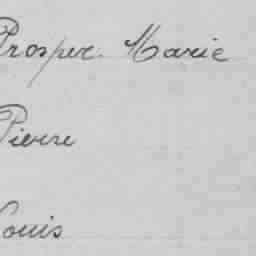 Prosper Marie
Pierre
Louis